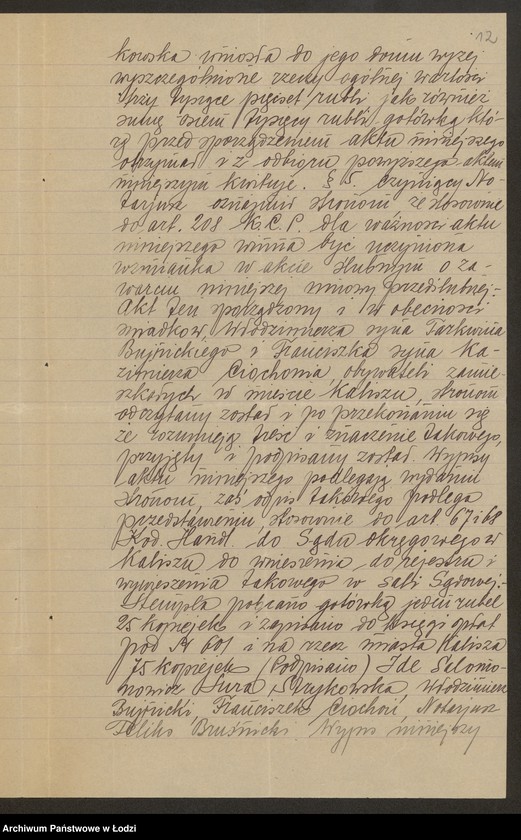 12
kowska wniosła do jego domu wyżej
wyszczególnione rzeczy ogólnej wartości
trzy tysiące pięćset rubli, jak również
sumę osiem tysięcy rubli gotówką któ-
rą przed sporządzeniem aktu niniejszego
otrzymał i z odbioru powyższego aktem
niniejszym kwituje. § 5. Czyniący No-
tarjusz oznajmił stronom że stosownie
do art. 208 K.C.P. dla ważności aktu
niniejszego winna być uczyniona
wzmianka w akcie ślubnym o za-
warciu niniejszej umowy przedślubnej.-
Akt ten sporządzony i w obecności
świadków, Włodzimierza syna
Bujnickiego i Franciszka syna Ka-
zimierza Ciochonia, obywateli zamie-
szkałych w mieście Kaliszu, stronom
odczytany został i po przekonaniu się
że rozumieją treść i znaczenie takowego,
przyjęty i podpisany został. Wypisy
aktu niniejszego podlegają wydaniu
stronom, zaś odpis takowego podlega
przedstawieniu, stosownie do art. 67 i 68
Kod. Handl. do Sądu okręgowego w
Kaliszu, do wniesienia do rejestra i
wywieszenia takowego w sali Sądowej.-
Stempla pobrano gotówką jeden rubel
25 kopiejek i zapisano do księgi opłat
pod № 601 i na rzecz miasta Kalisza
75 kopiejek (Podpisano) Ide Salomo-
nowicz Sura Strykowska, Włodzimierz
Bujnicki, Franciszek Ciochoń, Notarjusz
Feliks Bruśnicki. Wypis niniejszy
Archiwum Państwowe w Łodzi